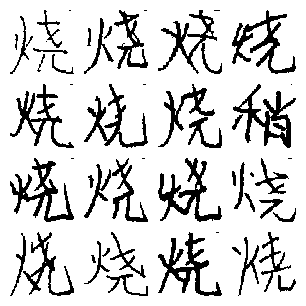 烧烧烧烧
烧烧烧稍
烧烧烧烧
烧烧烧烧